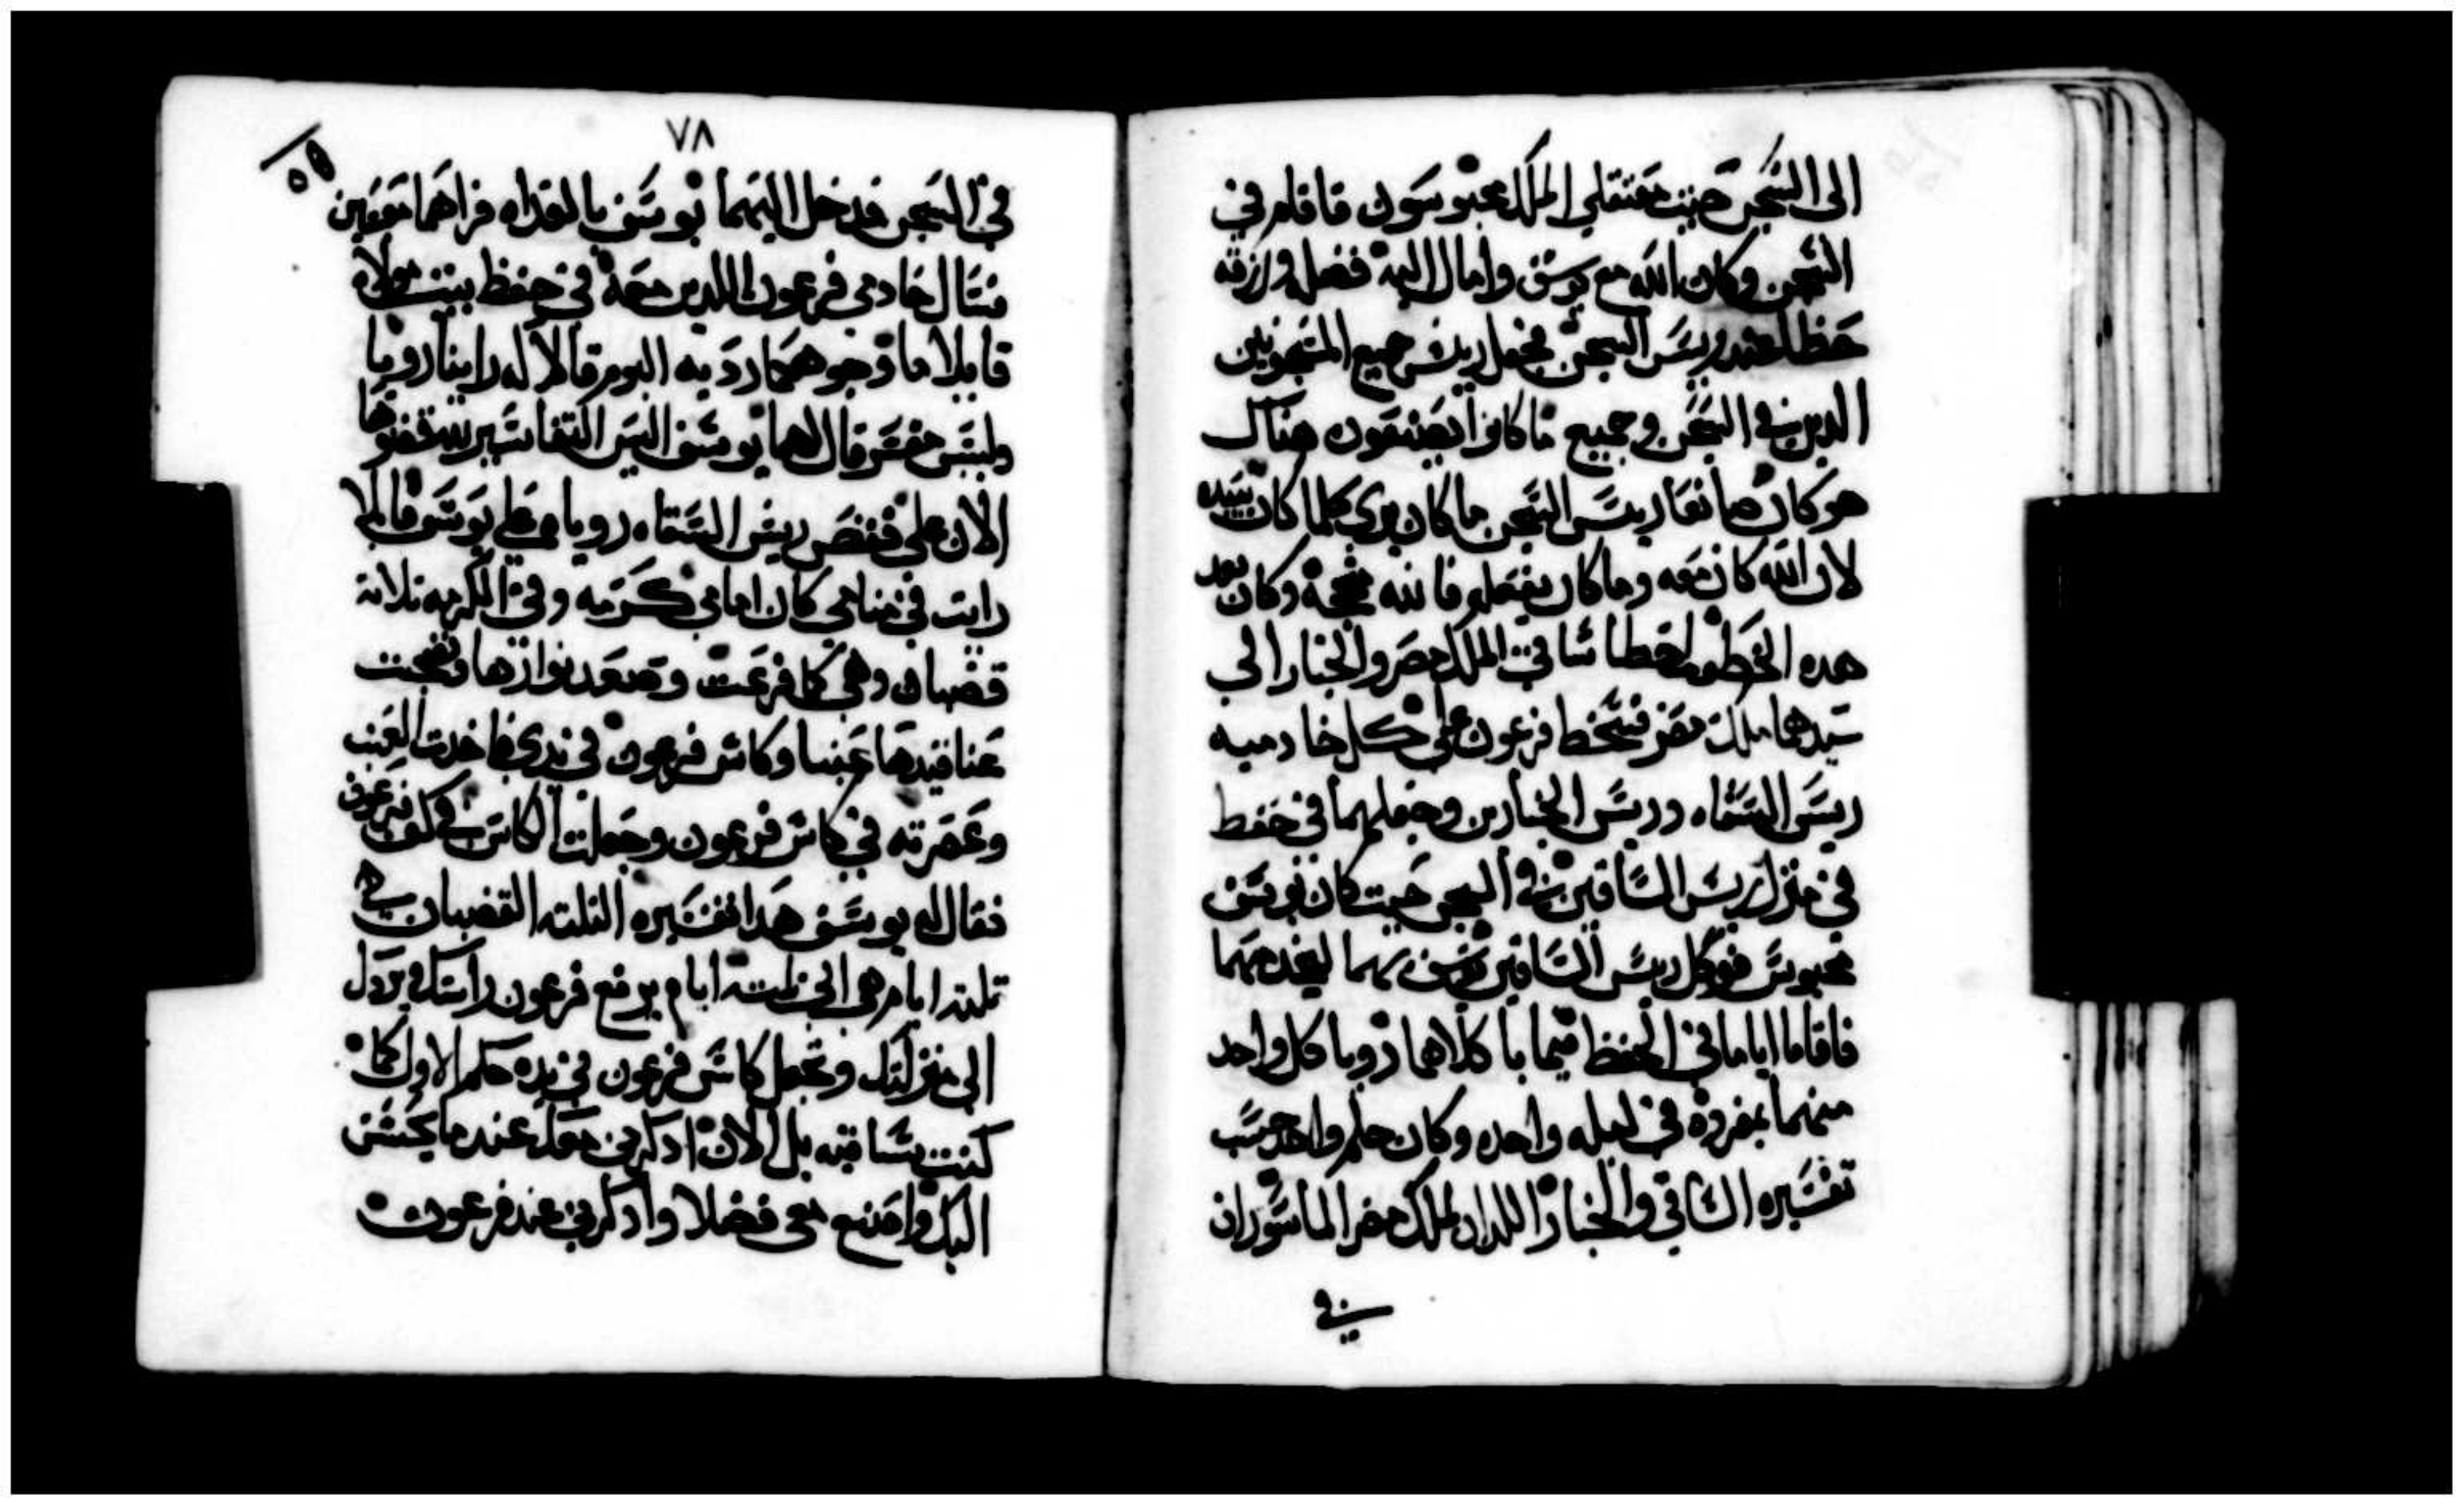 الى السجن حيت معتقلي الملك محبوسون فاقام في
السجن وكان الله مع يوسف وامال اليه فضل ورزقه
حظا عند ريس السجن فجعل ريس جميع المسجونين
الدين في السجن وجميع ما كانوا يصنعون هناك
هو كان صانعا ريس السجن ما كان يري كلما كان بيده
لان الله كان معه وما كان يفعله فالله منجحه وكان بعد
هده الخطوب اخطا ساقي الملك مصر والخباز الي
سيدهما ملك مصر فسخط فرعون علي كل خادميه
ريس السقاه وريس الخبازين وجعلهما في حفظ
في منزل ريس الساقين في السجن حيت كان يوسف
محبوس فوكل ريس الساقين يوسف بهما ليخدمهما
فاقاما اياما في الحفظ كلاهما رويا كل واحد
منهما بمفرده في ليله واحده وكان حلم واحد حسب
تفسيره الساقي والخباز اللدان لملك مصر الماسوران
في
٧٨
في السجن فدخل اليهما يوسف بالغداه فراهما
فسال خادمي فرعون اللدين معه في حفظ بيت مولاه
قايلا ما وجوهكما رديه اليوم قالا له راينا رويا
وليس مفسر قال لهما يوسف اليس التفاسير لله قصوها
الان علي فقص ريس السقاه روياه علي يوسف قايلا
رايت في منامي كان امامي كرمه وفي الكرمه تلاتة
قضبان وهي كما فرعت وصعد نوارها ونضجت
عناقيدها عنبا وكاس فرعون في يدي فاخدت العنب
وعصرته في كاس فرعون وجعلت الكاس في كف فرعون
فقال له يوسف هدا تفسيره التلته القضبان هي
تلته ايام هي الي تلتة ايام يرفع فرعون راسك ويردك
الي منزلتك وتجعل كاس فرعون في يده كالحكم الاول كما
كنت بساقيه بل الان ادكرني معك عندما يحسن
اليك واصنع معي فضلا وادكرني عند فرعون